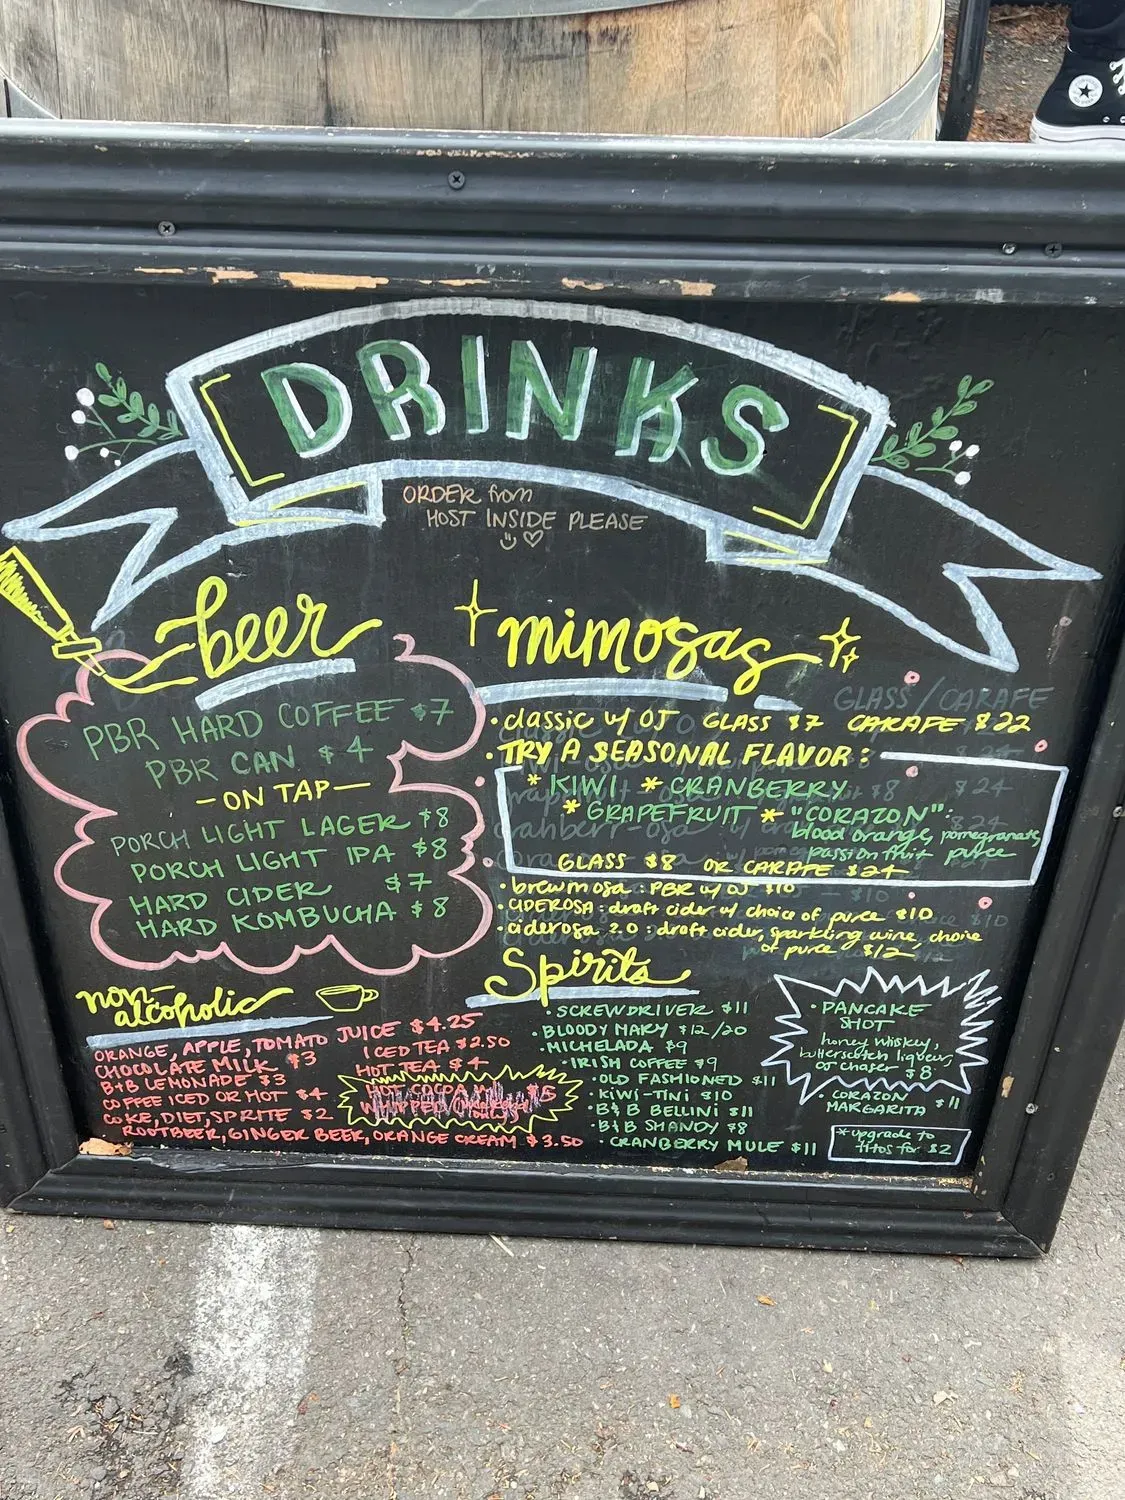 DRINKS
ORDER from
HOST INSIDE PLEASE
beer
PBR HARD COFFEE $7
PBR CAN $4
-ON TAP-
PORCH LIGHT LAGER $8
PORCH LIGHT IPA $8
HARD CIDER $7
HARD KOMBUCHA $8
mimosas
GLASS/CARAFE
• classic w/ OJ GLASS $7 CARAFE $22
• TRY A SEASONAL FLAVOR:
* KIWI * CRANBERRY
* GRAPEFRUIT * "CORAZON":
blood orange, pomegranate,
passion fruit puree
GLASS $8 OR CARAFE $24
• brewmosa: PBR w/ OJ $10
• CIDEROSA: draft cider w/ choice of puree $10
• ciderosa 2.0: draft cider, sparkling wine, choice
of puree $12
non-
alcoholic
ORANGE, APPLE, TOMATO JUICE $4.25
CHOCOLATE MILK $3
B+B LEMONADE $3
COFFEE ICED OR HOT $4
COKE, DIET, SPRITE $2
ROOTBEER, GINGER BEER, ORANGE CREAM $3.50
ICED TEA $2.50
HOT TEA $4
HOT COCOA $5
WHIPPED
Spirits
• SCREWDRIVER $11
• BLOODY MARY $12/20
• MICHELADA $9
• IRISH COFFEE $9
• OLD FASHIONED $11
• KIWI-TINI $10
• B&B BELLINI $11
• B&B SHANDY $8
• CRANBERRY MULE $11
• PANCAKE
SHOT
honey whiskey,
butterscotch liqueur,
OJ chaser $8
• CORAZON
MARGARITA $11
*upgrade to
titos for $2